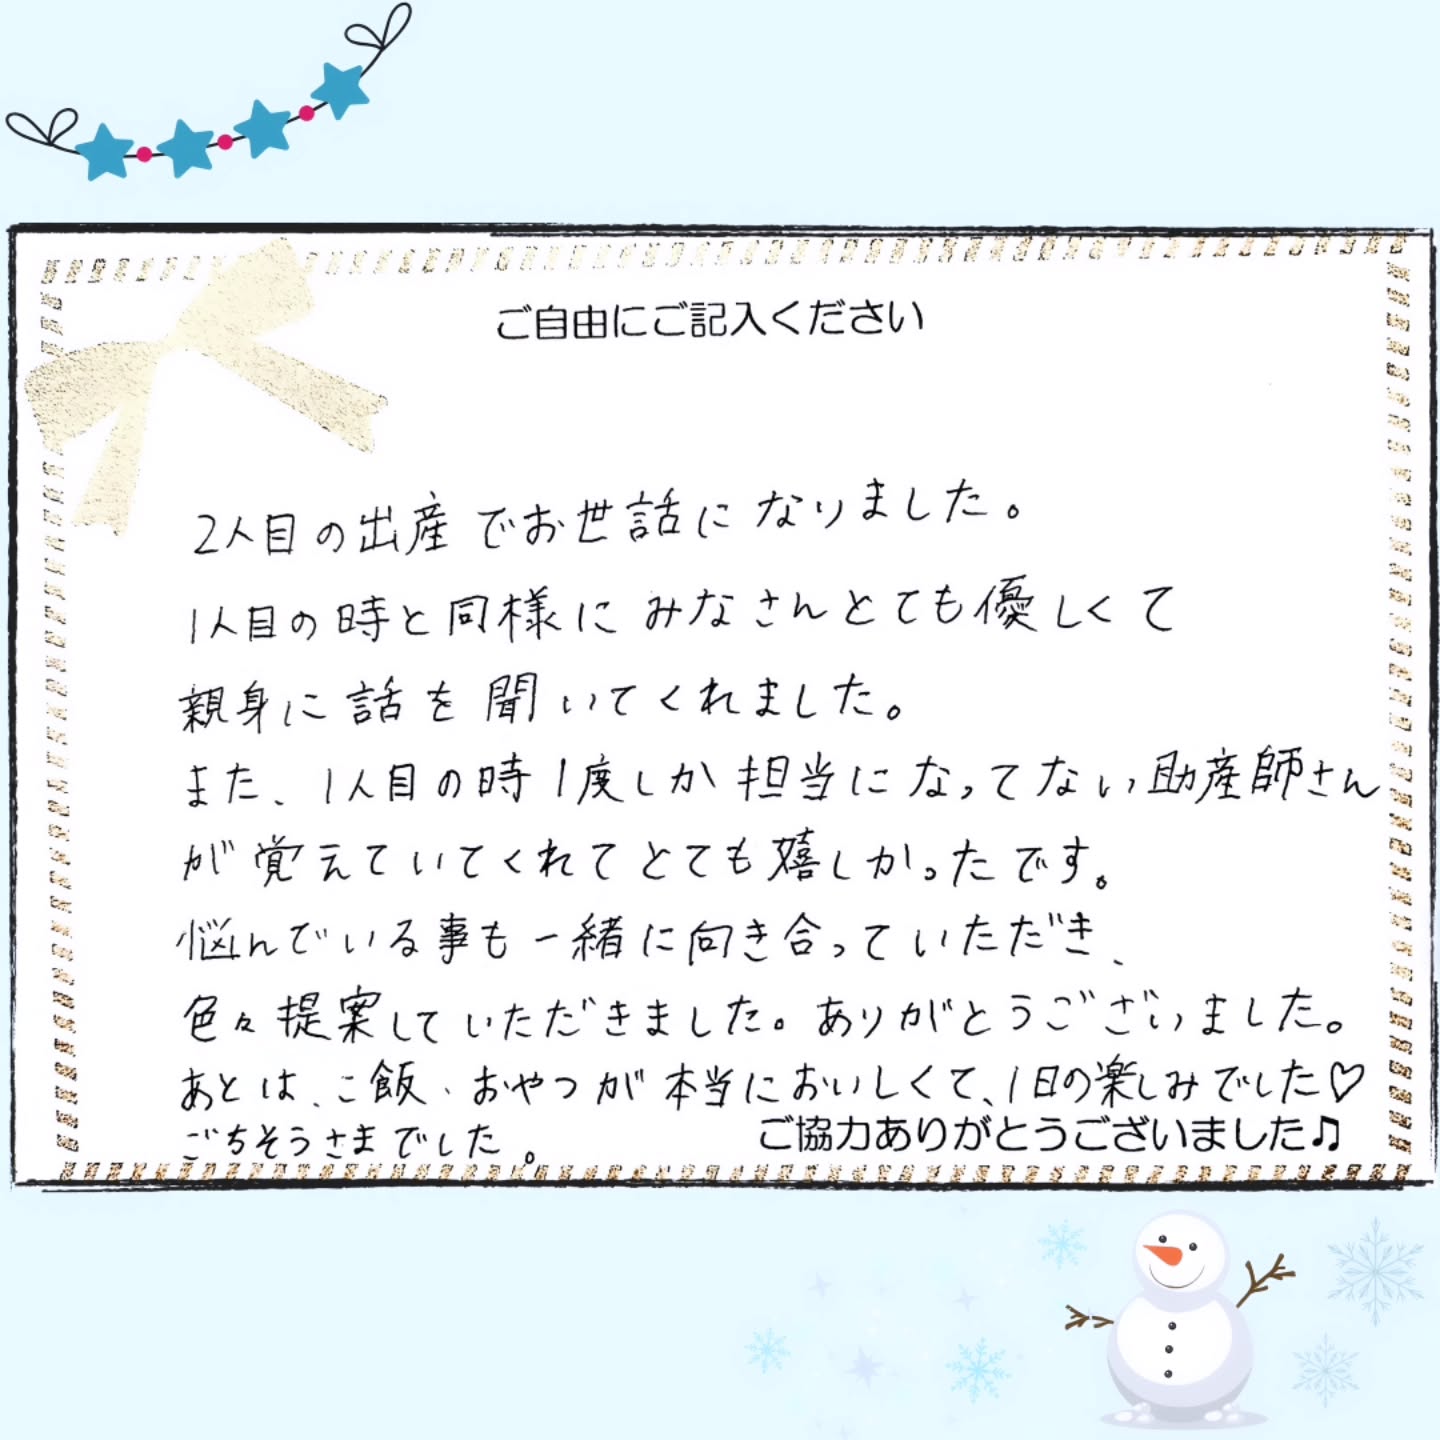 ご自由にご記入ください
2人目の出産でお世話になりました。
1人目の時と同様にみなさんとても優しくて
親身に話を聞いてくれました。
また、1人目の時1度しか担当になってない助産師さん
が覚えていてくれてとても嬉しかったです。
悩んでいる事も一緒に向き合っていただき、
色々提案していただきました。ありがとうございました。
あとは、ご飯・おやつが本当においしくて、1日の楽しみでした♡
ごちそうさまでした。
ご協力ありがとうございました♫